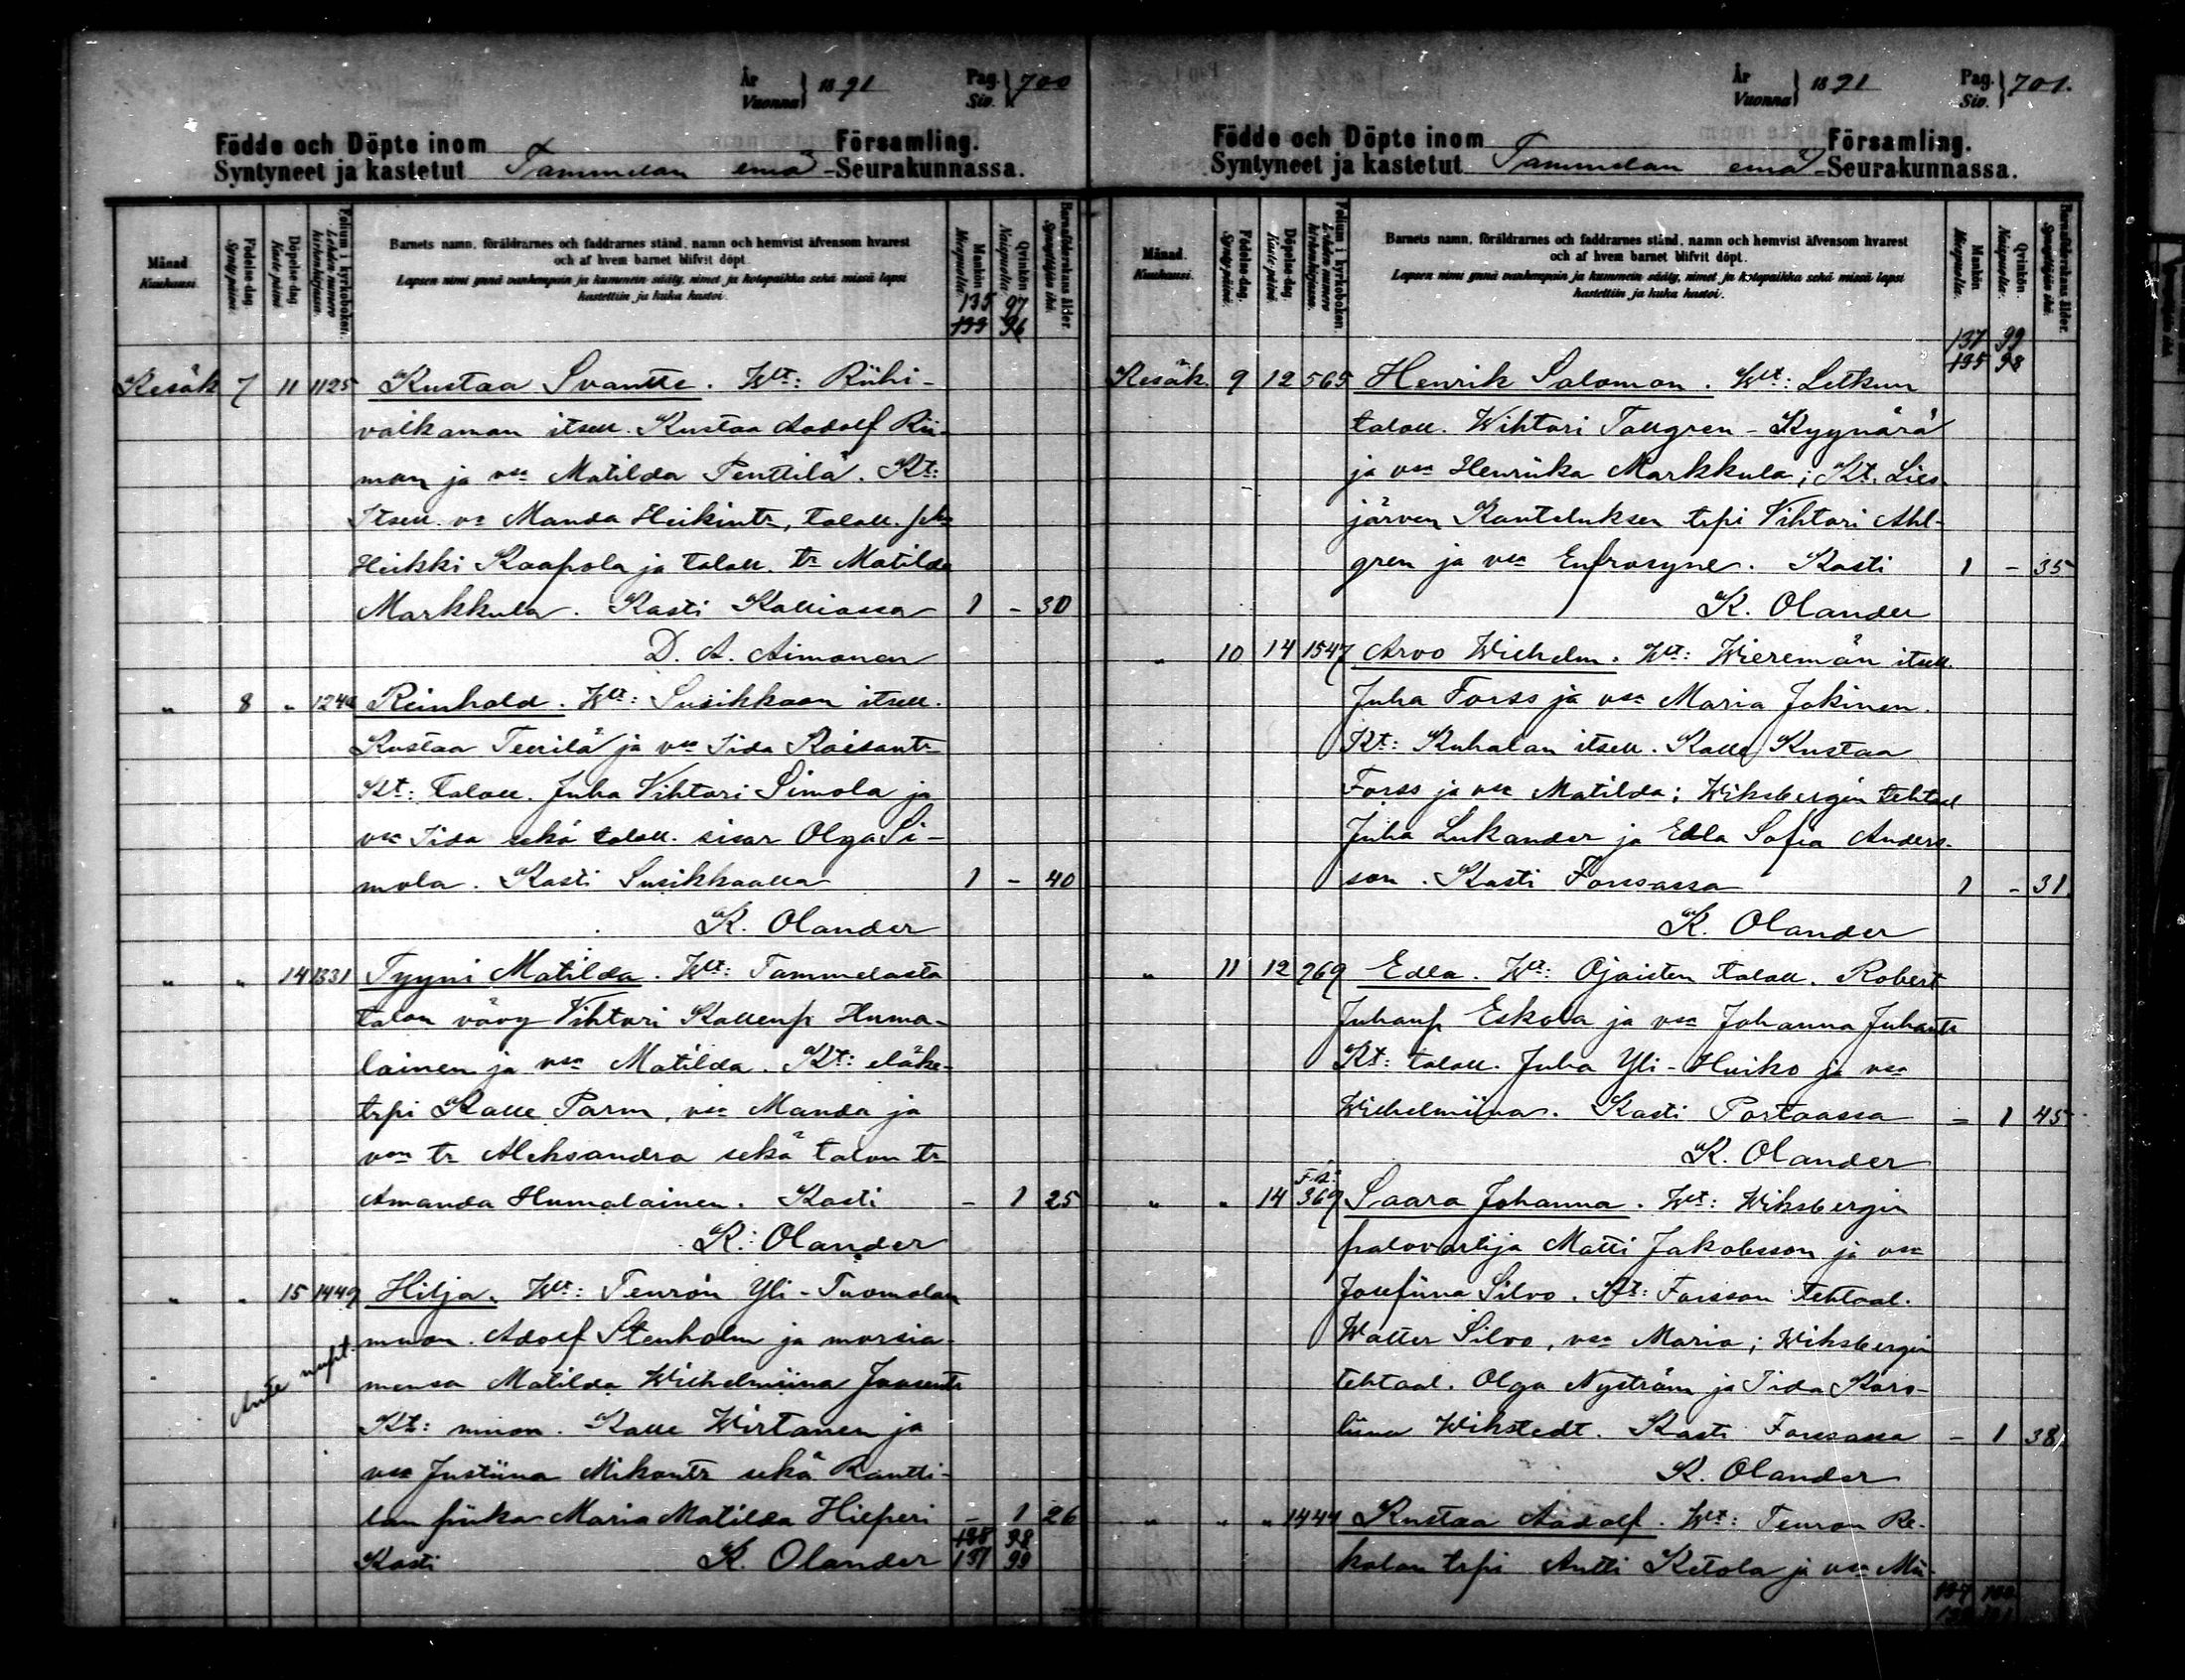 År Vuonna } 1891 Pag. Siv. } 700
Födde och Döpte inom Församling.
Syntyneet ja kastetut Tammelan emä -Seurakunnassa.
Månad. Kuukausi.
Födelse-dag. Syntypäivä.
Döpelse-dag. Kaste päivä.
Folium i kyrkoboken. Lehden numero kirkonkirjassa.
Barnets namn, föräldrarnes och faddrarnes stånd, namn och hemvist äfvensom hvarest
och af hvem barnet blifvit döpt.
Lapsen nimi ynnä vanhempain ja kummein sääty, nimet ja kotopaikka sekä missä lapsi
kastettiin ja kuka kastoi.
Mankön Miespuolia.
Qvinkön. Naispuolia.
Barnaföderskans ålder. Synnyttäjän ikä.
135 97
133 96
Kesäk 7 11 1125 Kustaa Svante. Wt: Riihi-
valkaman itsell. Kustaa Aadolf Rii-
man ja vsa Matilda Penttilä. Kt:
Itsell. va Manda Heikintr, talall.
Heikki Kaapola ja talall. tr Matilda
Markkula. Kasti Kalliossa 1 - 30
D. A. Aimonen
" 8 " Reinhold. Wt: Susikkaan itsell.
Kustaa Terrilä ja vsa Iida
Kt: talall. Juha Vihtori Simola ja
vsa Iida sekä talall. sisar Olga Si-
mola. Kasti Susikkaalla 1 - 40
K. Olander
" " 14 1331 Tyyni Matilda. Wt: Tammelasta
talon vävy Vihtori Kallenp. Huma-
lainen ja vsa Matilda. Kt: eläke-
trpi Kalle Parm, vsa Manda ja
tr Aleksandra sekä talon tr
Amanda Humalainen. Kasti - 1 25
K. Olander
" " 15 1449 Hilja. Wt: Teuron Yli-Tuomolan
muon. Adolf Stenholm ja morsia-
Ante nupt. mensa Matilda Wilhelmiina Joosentr
Kt: muon. Kalle Wirtanen ja
vsa Justiina Mikontr sekä Rantti-
lan piika Maria Matilda Hieperi - 1 26
Kasti K. Olander
135 98
137 99
År Vuonna } 1891 Pag. Siv. } 701.
Födde och Döpte inom Församling.
Syntyneet ja kastetut Tammelan emä -Seurakunnassa.
Månad. Kuukausi.
Födelse-dag. Syntypäivä.
Döpelse-dag. Kaste päivä.
Folium i kyrkoboken. Lehden numero kirkonkirjassa.
Barnets namn, föräldrarnes och faddrarnes stånd, namn och hemvist äfvensom hvarest
och af hvem barnet blifvit döpt.
Lapsen nimi ynnä vanhempain ja kummein sääty, nimet ja kotopaikka sekä missä lapsi
kastettiin ja kuka kastoi.
Mankön Miespuolia.
Qvinkön. Naispuolia.
Barnaföderskans ålder. Synnyttäjän ikä.
137 99
135 98
Kesäk. 9 12 565 Henrik Salomon. Wt: Letkun
talall. Wihtori Tallgren-Kyynärä
ja vsa Henriika Markkula; Kt. Lies-
järven Kanteluksen trpi Vihtori Ahl-
gren ja vsa Eufrosyne. Kasti 1 - 35
K. Olander
" 10 14 1547 Arvo Wilhelm. Wt: Wieremän itsell.
Juha Forss ja vsa Maria Jokinen.
Kt: Kuhalan itsell. Kalle Kustaa
Forss ja vsa Matilda; Wiksbergin tehtaal
Juha Lukander ja Edla Sofia Anders-
son. Kasti Forssassa 1 - 31
K. Olander
" 11 12 769 Edla. Wt: Ojaisten talall. Robert
Juhanp Eskola ja vsa Johanna Juhantr
Kt: talall. Juha Yli-Huiko ja vsa
Wilhelmiina. Kasti Portaassa - 1 45
K. Olander
" " 14 369 Saara Johanna. Wt: Wiksbergin
palovartija Matti Jakobsson ja vsa
Josefiina Silvo. Kt: Forssan tehtaal.
Walter Silvo, vsa Maria; Wiksbergin
tehtaal. Olga Nyström ja Iida Karo-
liina Wikstedt. Kasti Forssassa - 1 38
K. Olander
" " " 1444 Kustaa Aadolf. Wt: Teuron Re-
kolan trpi Antti Ketola ja vsa Mii-